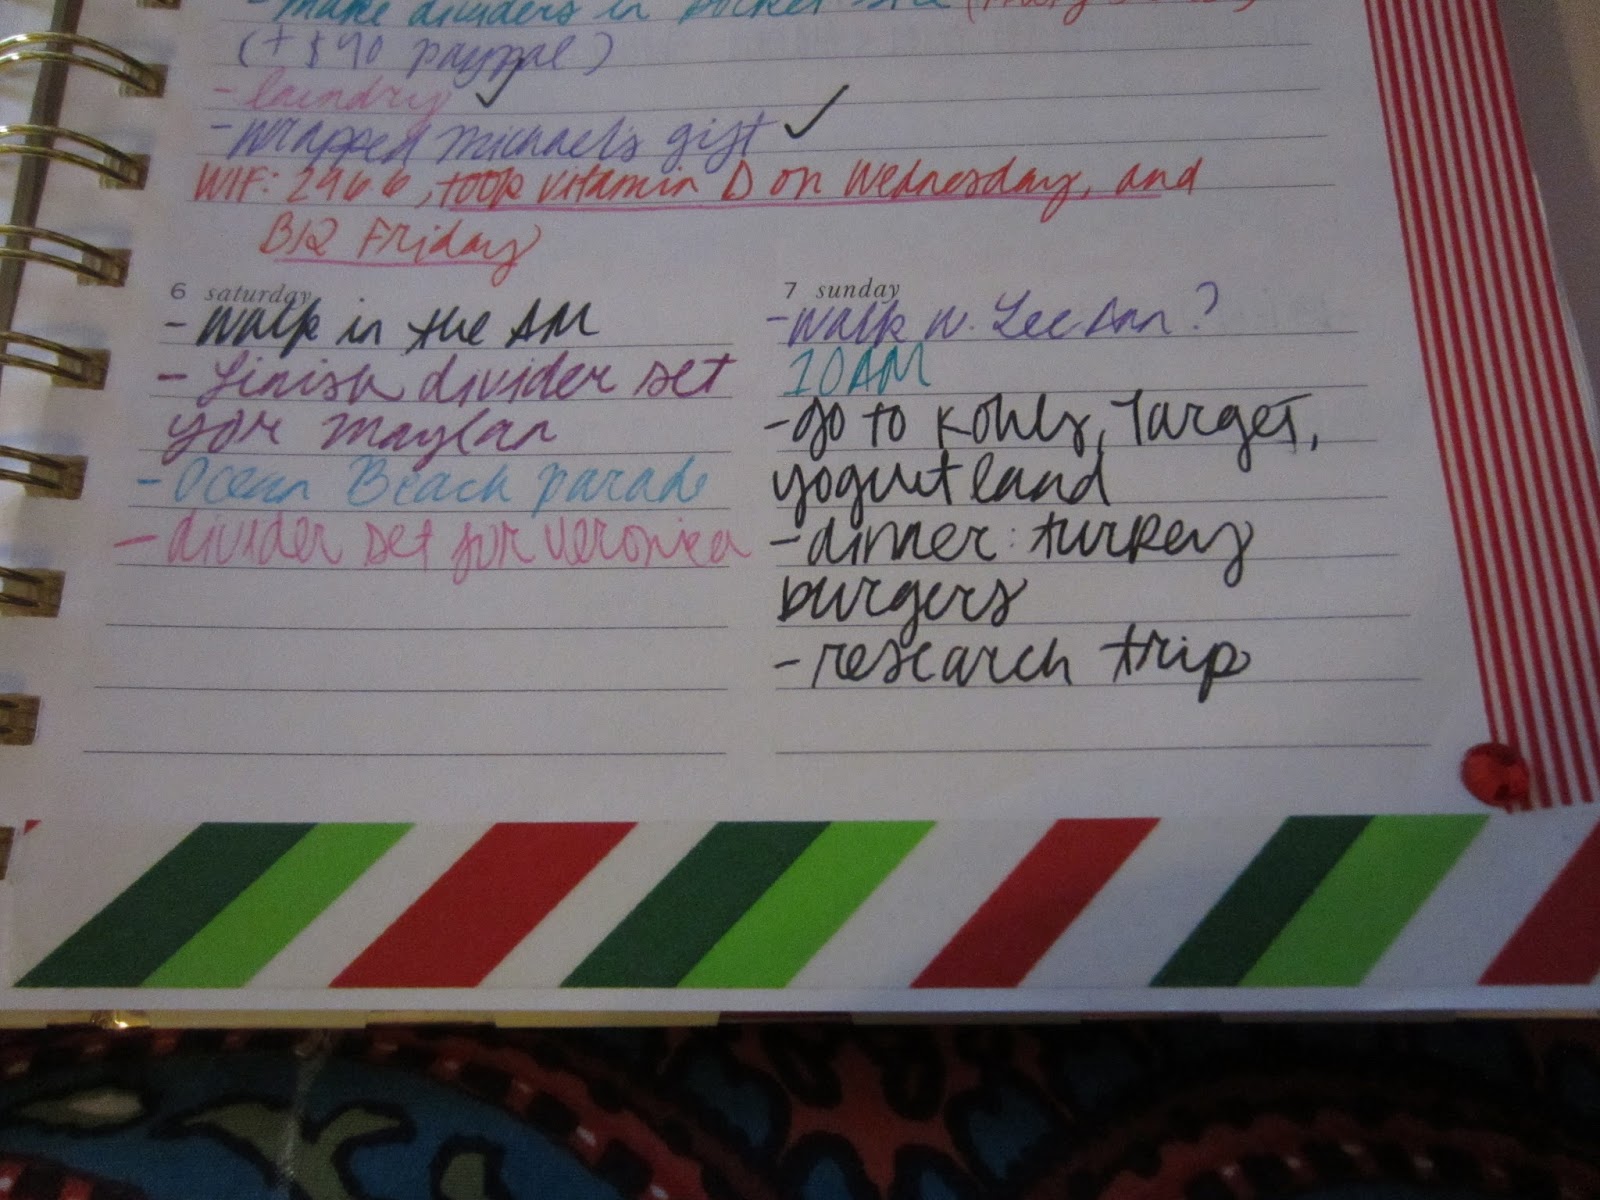 - make dividers in pocket size
(+ $90 paypal)
- laundry ✓
- wrapped Michael's gift ✓
WIF: 296.6, took vitamin D on Wednesday, and
B12 Friday
6 saturday
- walk in the AM
- finish divider set
for Maylan
- Ocean Beach parade
- divider set for Veronica
7 sunday
- walk w. Lee Ann?
10AM
- go to Kohls, Target,
yogurtland
- dinner: turkey
burgers
- research trip